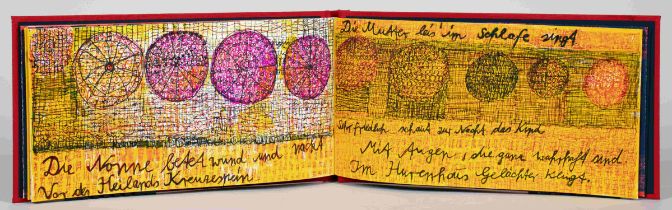 Die Nonne betet wund und nackt
Vor des Heilands Kreuzespein.
Die Mutter leis' im Schlafe singt.
Sehr friedlich schaut zur Nacht das Kind
Mit Augen, die ganz wahrhaft sind
Im Hurenhaus Gelächter klingt.